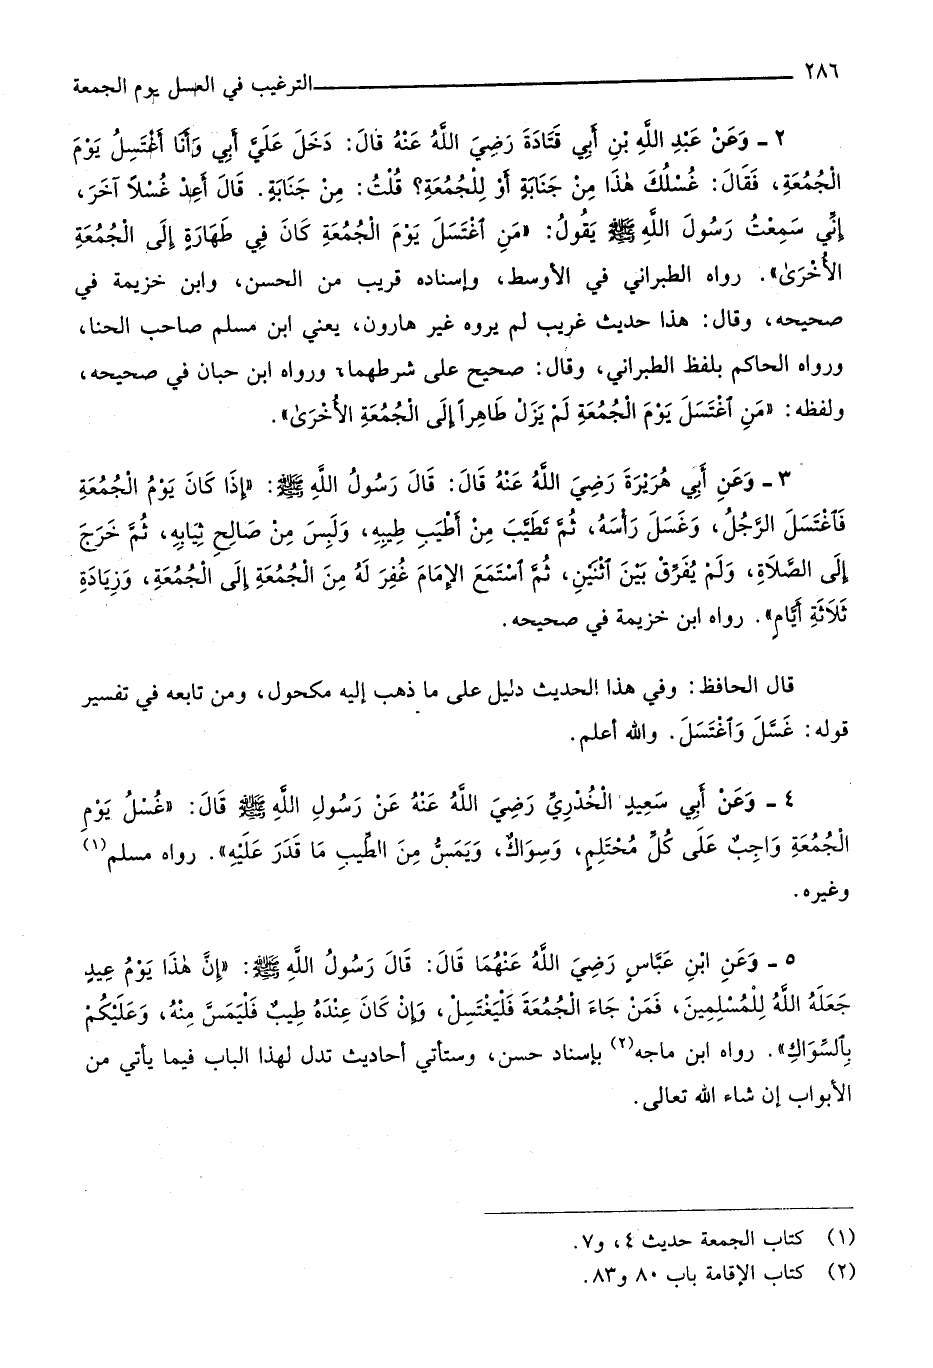 ٢٨٦ الترغيب في الغسل يوم الجمعة
٢ ـ وَعَنْ عَبْدِ اللَّهِ بْنِ أَبِي قَتَادَةَ رَضِيَ اللَّهُ عَنْهُ قَالَ: دَخَلَ عَلَيَّ أَبِي وَأَنَا أَغْتَسِلُ يَوْمَ
الْجُمُعَةِ، فَقَالَ: غُسْلُكَ هٰذَا مِنْ جَنَابَةٍ أَوْ لِلْجُمُعَةِ؟ قُلْتُ: مِنْ جَنَابَةٍ. قَالَ أَعِدْ غُسْلاً آخَرَ،
إِنِّي سَمِعْتُ رَسُولَ اللَّهِ ﷺ يَقُولُ: «مَنِ ٱغْتَسَلَ يَوْمَ الْجُمُعَةِ كَانَ فِي طَهَارَةٍ إِلَى الْجُمُعَةِ
الأُخْرَىٰ». رواه الطبراني في الأوسط، وإسناده قريب من الحسن، وابن خزيمة في
صحيحه، وقال: هذا حديث غريب لم يروه غير هارون، يعني ابن مسلم صاحب الحنا،
ورواه الحاكم بلفظ الطبراني، وقال: صحيح على شرطهما، ورواه ابن حبان في صحيحه،
ولفظه: «مَنِ ٱغْتَسَلَ يَوْمَ الْجُمُعَةِ لَمْ يَزَلْ طَاهِراً إِلَى الْجُمُعَةِ الأُخْرَىٰ».
٣ ـ وَعَنِ أَبِي هُرَيْرَةَ رَضِيَ اللَّهُ عَنْهُ قَالَ: قَالَ رَسُولُ اللَّهِ ﷺ: «إِذَا كَانَ يَوْمُ الْجُمُعَةِ
فَٱغْتَسَلَ الرَّجُلُ، وَغَسَلَ رَأْسَهُ، ثُمَّ تَطَيَّبَ مِنْ أَطْيَبِ طِيبِهِ، وَلَبِسَ مِنْ صَالِحِ ثِيَابِهِ، ثُمَّ خَرَجَ
إِلَى الصَّلَاةِ، وَلَمْ يُفَرِّقْ بَيْنَ ٱثْنَيْنِ، ثُمَّ ٱسْتَمَعَ الإِمَامَ غُفِرَ لَهُ مِنَ الْجُمُعَةِ إِلَى الْجُمُعَةِ، وَزِيَادَةِ
ثَلَاثَةِ أَيَّامٍ». رواه ابن خزيمة في صحيحه.
قال الحافظ: وفي هذا الحديث دليل على ما ذهب إليه مكحول، ومن تابعه في تفسير
قوله: غَسَّلَ وَٱغْتَسَلَ. والله أعلم.
٤ ـ وَعَنْ أَبِي سَعِيدٍ الْخُدْرِيِّ رَضِيَ اللَّهُ عَنْهُ عَنْ رَسُولِ اللَّهِ ﷺ قَالَ: «غُسْلُ يَوْمِ
الْجُمُعَةِ وَاجِبٌ عَلَى كُلِّ مُحْتَلِمٍ، وَسِوَاكٌ، وَيَمَسُّ مِنَ الطِّيبِ مَا قَدَرَ عَلَيْهِ». رواه مسلم(١)
وغيره.
٥ ـ وَعَنِ ابْنِ عَبَّاسٍ رَضِيَ اللَّهُ عَنْهُمَا قَالَ: قَالَ رَسُولُ اللَّهِ ﷺ: «إِنَّ هٰذَا يَوْمُ عِيدٍ
جَعَلَهُ اللَّهُ لِلْمُسْلِمِينَ، فَمَنْ جَاءَ الْجُمُعَةَ فَلْيَغْتَسِلْ، وَإِنْ كَانَ عِنْدَهُ طِيبٌ فَلْيَمَسَّ مِنْهُ، وَعَلَيْكُمْ
بِٱلسِّوَاكِ». رواه ابن ماجه(٢) بإسناد حسن، وستأتي أحاديث تدل لهذا الباب فيما يأتي من
الأبواب إن شاء الله تعالى.
(١) كتاب الجمعة حديث ٤، و٧.
(٢) كتاب الإقامة باب ٨٠ و٨٣.